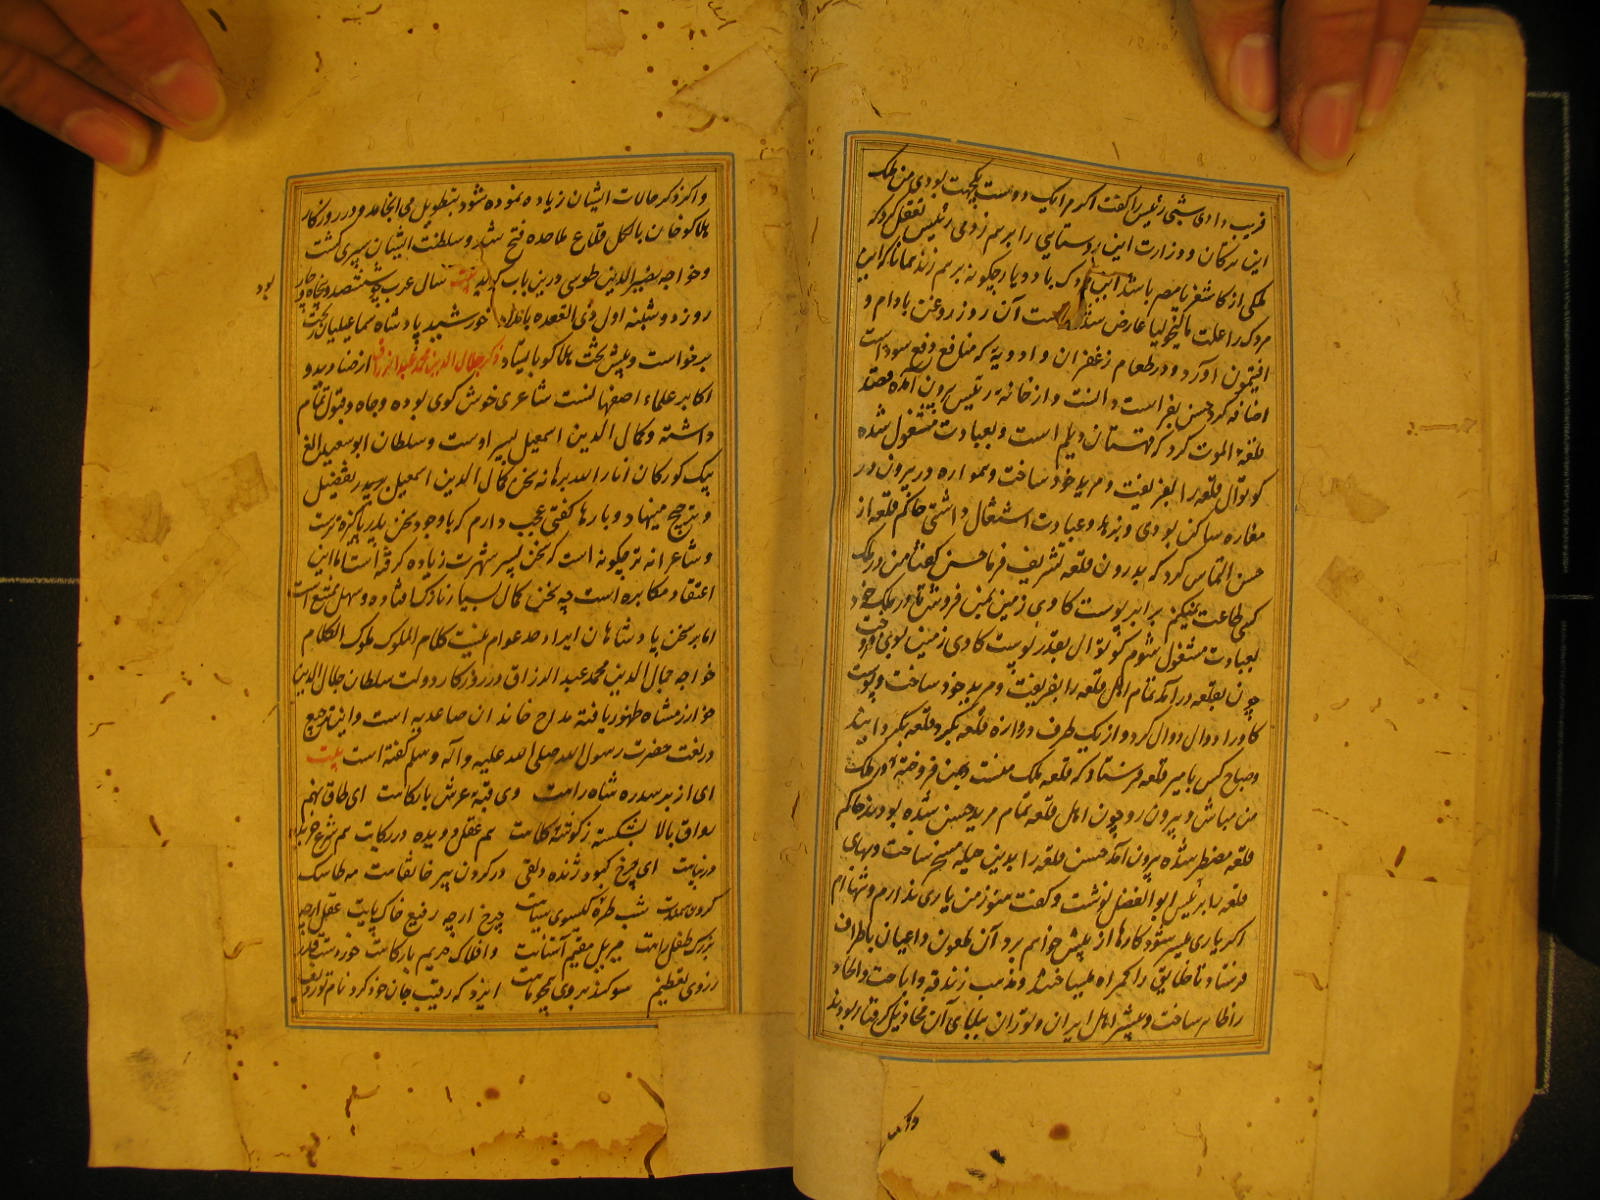 فریب دادی شبی رئیس را گفت اکر مرا یک دوست یکجهت بودی من ملک
این ترکان و وزارت این روستایی را برهم زدمی رئیس تعقل کرد که
ملکی از کاشغر تا مصر باشد این مردک با دو یار چگونه برهم زند همانا که این
مردک را علت مالیخولیا عارض شده است آن روز روغن بادام و
افتیمون آورد و در طعام زعفران و ادویهٔ که منافع دفع سوداست
اضافه کرد حسن بفراست دانست و از خانهٔ رئیس بیرون آمده قصد
قلعهٔ الموت کرد که قهستان دیلم است و بعبادت مشغول شده
کوتوال قلعه را بفریفت و مرید خود ساخت و همواره در بیرون در
مغاره ساکن بودی و بزهد و عبادت اشتغال داشتی حاکم قلعه از
حسن التماس کرد که بدرون قلعه تشریف فرما حسن کفتا من در ملک
کسی طاعت نمیکنم برابر پوست کاوی زمین بمن فروش تا در ملک خود
بعبادت مشغول شوم کوتوال بقدر پوست کاوی زمین بوی فروخت
چون بقلعه درآمد تمام اهل قلعه را بفریفت و مرید خود ساخت و پوست
کاو را دوال دوال کرد و از یک طرف دروازه قلعه بکرد قلعه بکردانید
و صباح کس بامیر قلعه فرستاد که قلعه ملک منست بمن فروخته و در ملک
من مباش و بیرون رو چون اهل قلعه تمام مرید حسن شده بودند حاکم
قلعه مضطر شده بیرون آمد حسن قلعه را بدین حیله مسخر ساخت و بهای
قلعه را برئیس ابوالفضل نوشت و کفت هنوز من یاری ندارم و تنها ام
اکر یاری میسر شود کارها از پیش خواهم برد آن ملعون داعیان باطراف
فرستاد تا خلایق را کمراه میساختند و مذهب زندقه و اباحت و الحاد
را ظاهر ساخت و بیشتر اهل ایران و توران ببلای آن مخاذیل کرفتار بودند
و اکر
و اکر ذکر حالات ایشان زیاده نموده شود بتطویل می انجامد و در روزکار
هلاکو خان بالکل قلاع ملاحده فتح شد و سلطنت ایشان سپری کشت
و خواجه نصیرالدین طوسی درین باب کوید بیت سال عرب چو ششصد و پنجاه و چار
بود
روز دوشنبه اول ذی القعده بامداد خورشید پادشاه سماعیلیان ز تخت
برخواست و پیش تخت هلاکو بایستاد ذکر جمال الدین محمد عبدالرزاق از صنادید و
اکابر علماء اصفهانست شاعری خوش کوی بوده و جاه و قبول تمام
داشته و کمال الدین اسمعیل پسر اوست و سلطان ابو سعید الغ
بیک کورکان انار الله برهانه سخن کمال الدین اسمعیل بر پدر تفضیل
و ترجیح مینهاد و بارها کفتی عجب دارم که با وجود سخن پدر پاکیزه ترست
و شاعرانه تر چگونه است که سخن پسر شهرت زیاده کرفته است اما این
اعتقاد مکابره است چه سخن کمال بسیار نازک افتاده و سهل ممتنع است
اما بر سخن پادشاهان ایراد حد عوام نیست کلام الملوک ملوک الکلام
خواجه جمال الدین محمد عبد الرزاق در روزکار دولت سلطان جلال الدین
خوارزمشاه ظهور یافته مداح خاندان صاعدیه است و این ترجیع
در نعت حضرت رسول الله صلی الله علیه و آله و سلم کفته است بیت
ای از بر سدره شاه راهت وی قبهٔ عرش بارکاهت ای طاق نهم
رواق بالا بشکسته ز کوشهٔ کلاهت هم عقل دویده در رکابت هم شرع خزیده
در پناهت ای چرخ کبود ژنده دلقی در کردن پیر خانقاهت مه طاسک
کردن سمندت شب طرهٔ کیسوی سیاهت چرخ ارچه رفیع خاک پایت عقل ارچه
بزرک طفل راهت جبریل مقیم آستانت و افلاک حریم بارکاهت خوردست قدر
ز روی تعظیم سوکند بروی همچو ماهت ایزد که رقیب جان خرد کرد نام تو ردیف